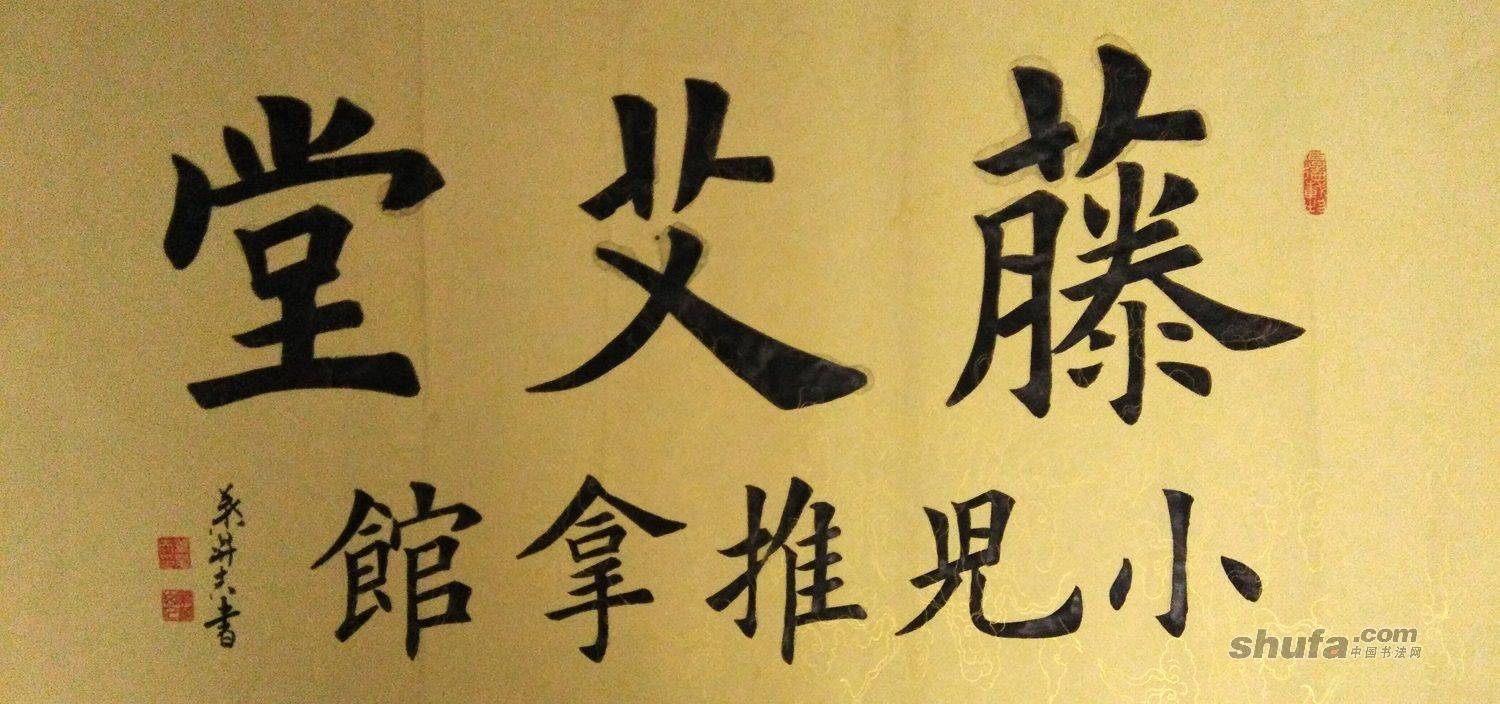 藤艾堂
小児推拿館
書
shufa.com
中国书法网